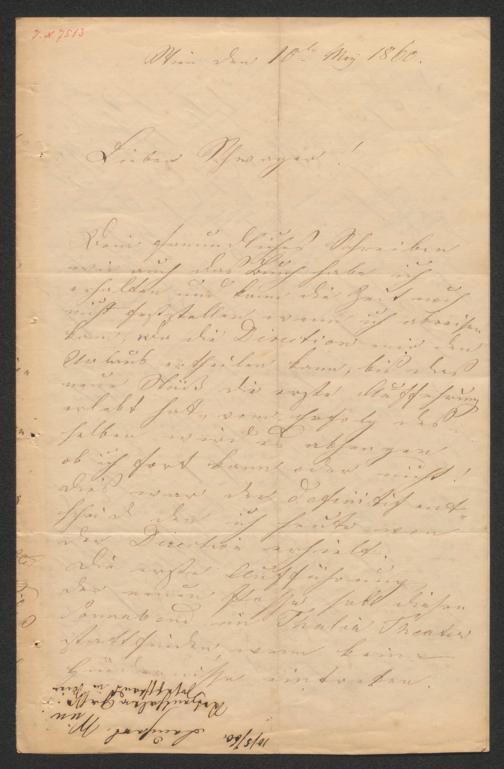 Wien den 10te May 1860.
Lieber Schwager!
Dein freundliches Schreiben
wie auch das Buch habe ich
erhalten und kann die Zeit noch
nicht feststellen wenn ich abreisen
kann, wo die Direction mir den
Urlaub ertheilen kann, bis das
neue Stück die erste Aufführung
erlebt hat, vom Erfolg des
selben wird es abhangen
ob ich fort kann oder nicht!
Dies war der Definitif ent
scheid den ich heute von
der Direction erhielt.
Die erste Aufführung
der neuen Posse hat diesen
Sonnabend im Thalia Theater
stattfinden, wenn keine
Hindernisse eintreten.
10/5/60.
Wien